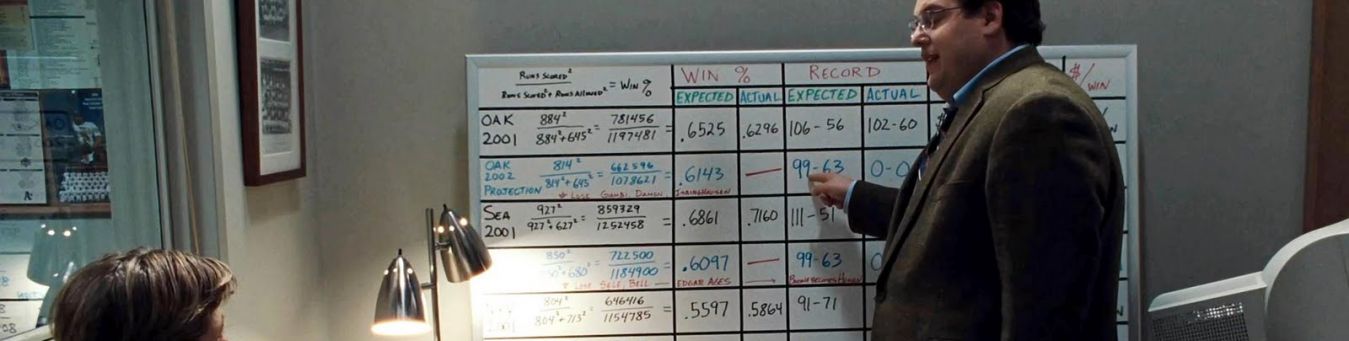 RUNS SCORED² / RUNS SCORED² + RUNS ALLOWED² = WIN %
WIN % RECORD $/WIN
EXPECTED ACTUAL EXPECTED ACTUAL
OAK 2001 884² / 884²+645² = 781456 / 1197481 = .6525 .6296 106-56 102-60
OAK 2002 PROJECTION 814² / 814²+645² = 662596 / 1078621 = .6143 — 99-63 0-0
* LOSE GIAMBI, DAMON, ISRINGHAUSEN
SEA 2001 927² / 927²+627² = 859329 / 1252458 = .6861 .7160 111-51
850² / 850²+680² = 722500 / 1184900 = .6097 — 99-63 0
* LOSE SELE, BELL — EDGAR AGES → BOONE BECOMES HUMAN
2001 804² / 804²+713² = 646416 / 1154785 = .5597 .5864 91-71